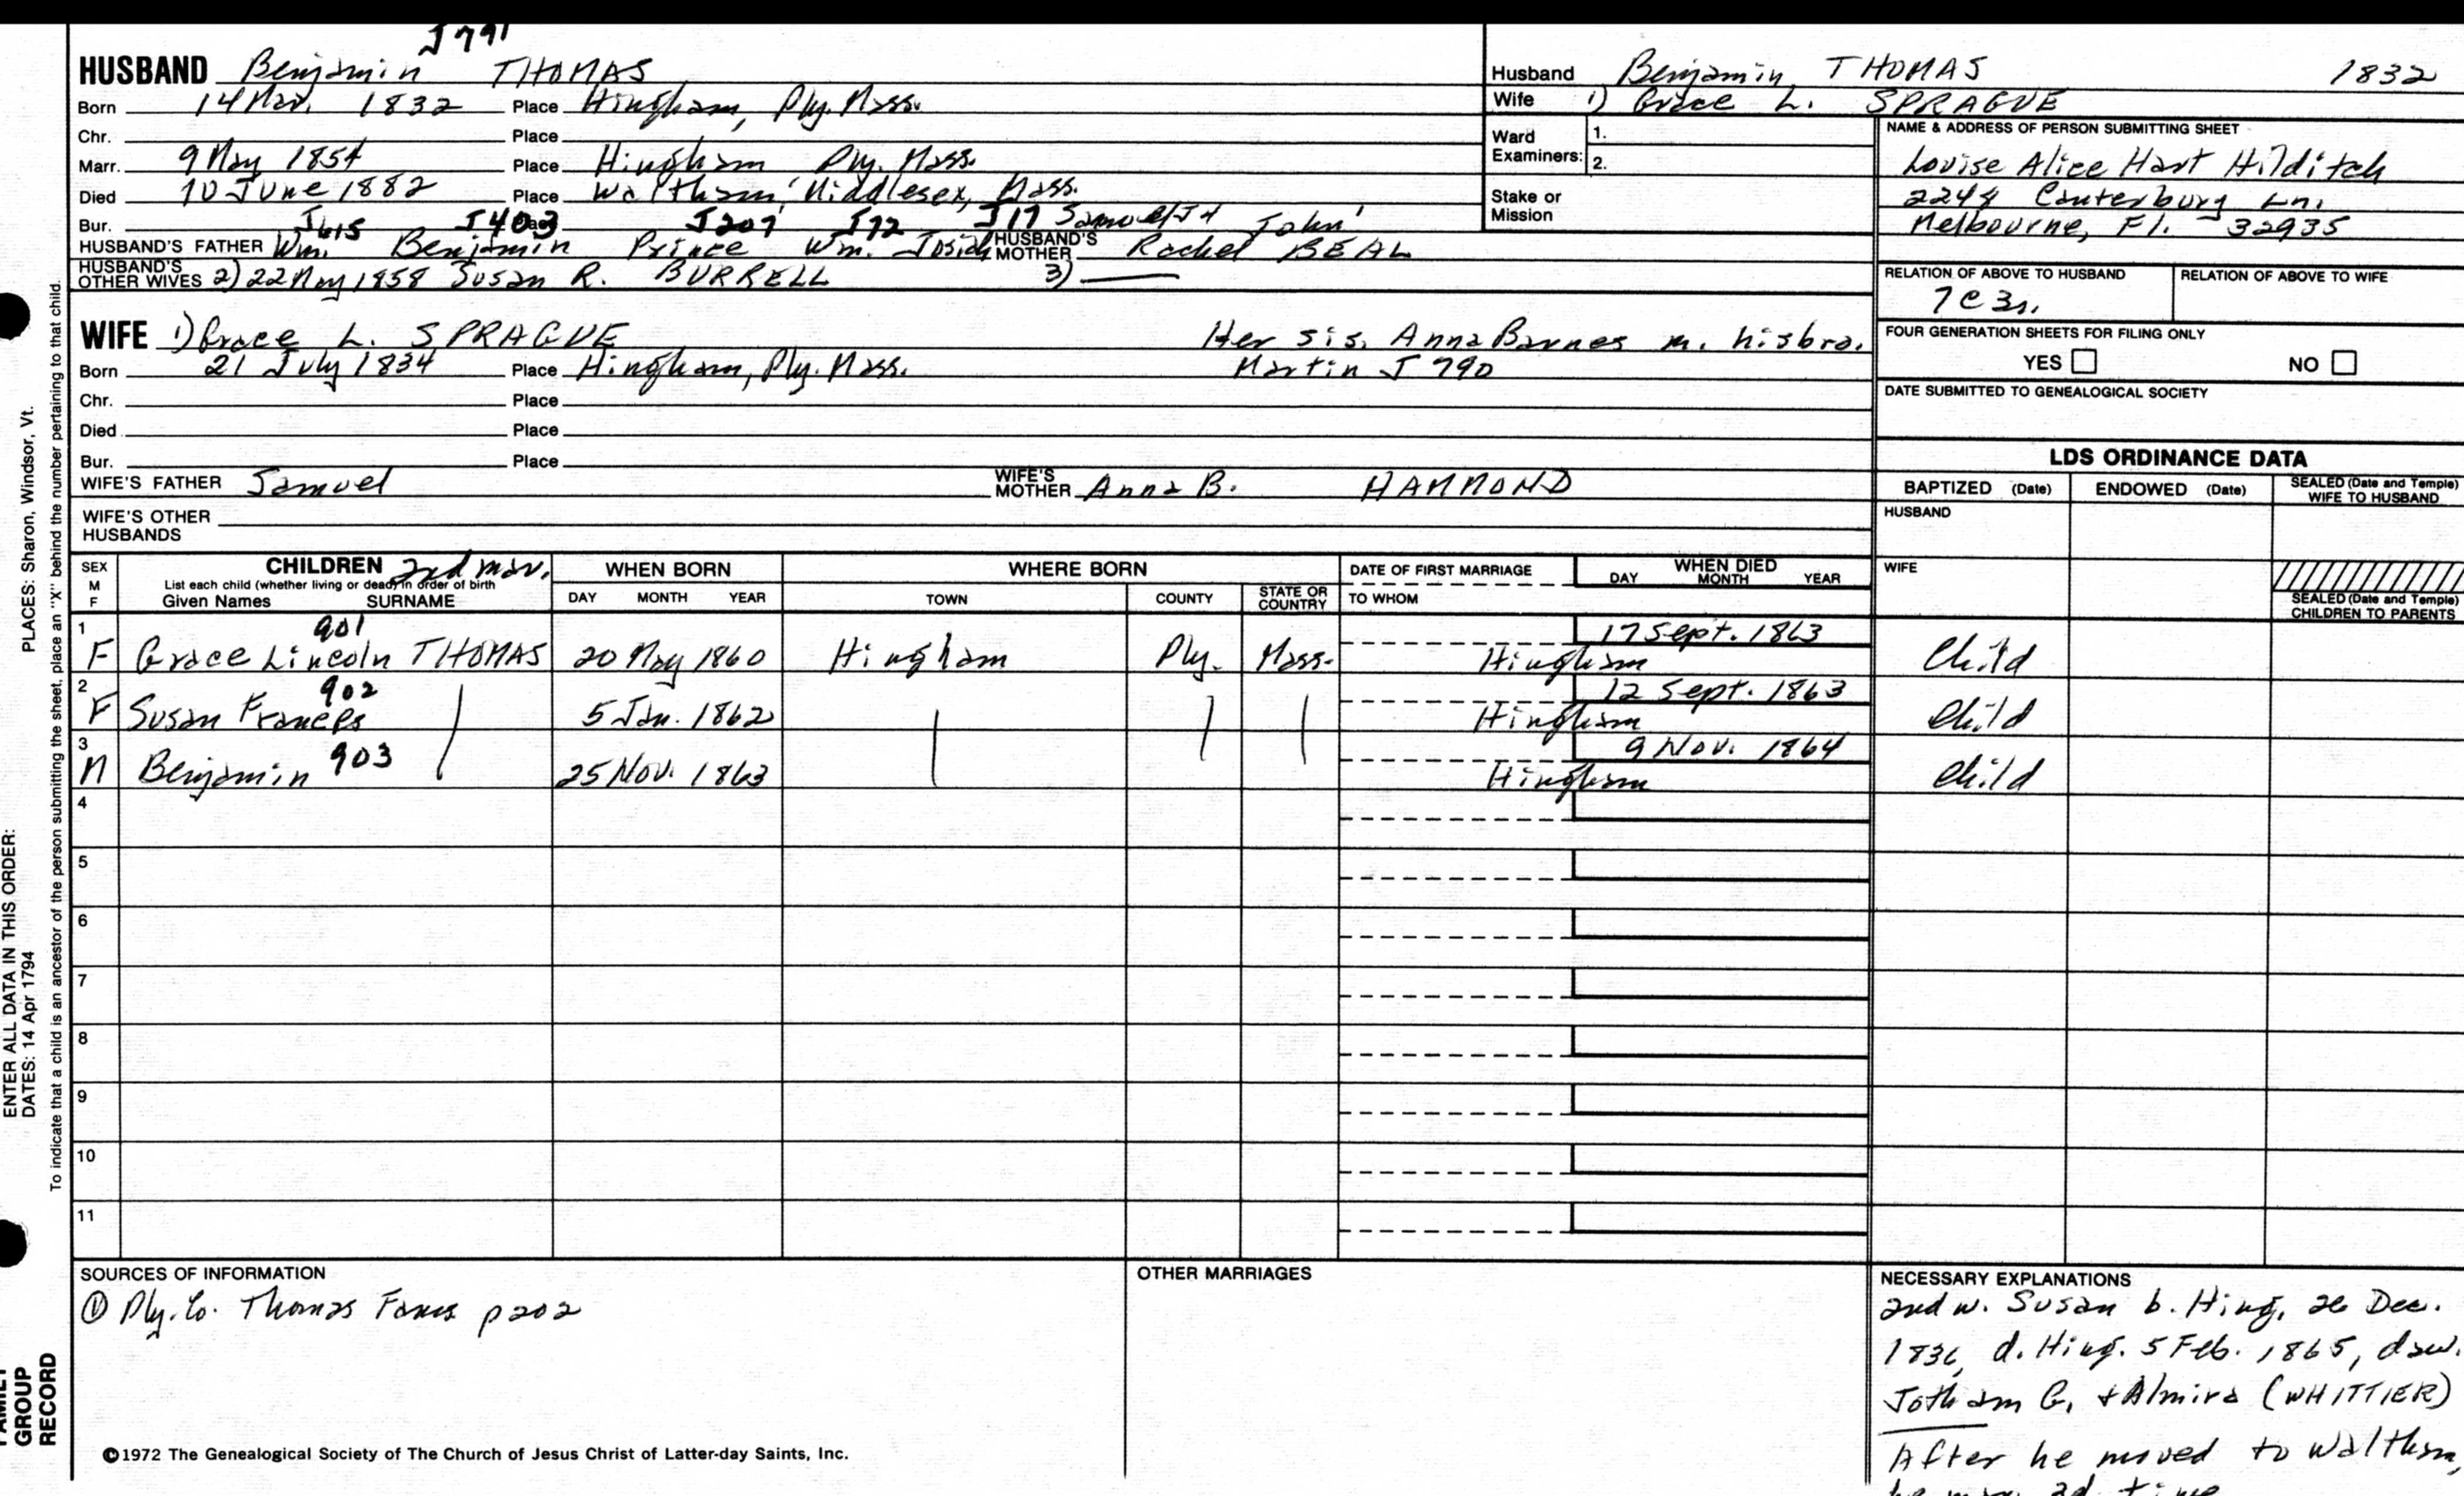 J791
HUSBAND Benjamin THOMAS
Born 14 Mar. 1832 Place Hingham, Ply. Mass.
Chr. Place
Marr. 9 May 1854 Place Hingham Ply. Mass.
Died 10 June 1882 Place Waltham, Middlesex, Mass.
Bur. J615 J403 J207 J72 J17 Samuel/J4 John'
HUSBAND'S FATHER Wm. Benjamin Prince Wm. Josiah HUSBAND'S MOTHER Rachel BEAL
HUSBAND'S OTHER WIVES 2) 22 May 1858 Susan R. BURRELL 3)
WIFE 1) Grace L. SPRAGUE Her sis. Anna Barnes m. his bro.
Born 21 July 1834 Place Hingham, Ply. Mass. Martin J 790
Chr. Place
Died Place
Bur. Place
WIFE'S FATHER Samuel WIFE'S MOTHER Anna B. HAMMOND
WIFE'S OTHER
HUSBANDS
Husband Benjamin THOMAS 1832
Wife 1) Grace L. SPRAGUE
Ward Examiners: 1.
2.
Stake or
Mission
NAME & ADDRESS OF PERSON SUBMITTING SHEET
Louise Alice Hart Hilditch
2244 Canterbury Ln.
Melbourne, Fl. 32935
RELATION OF ABOVE TO HUSBAND RELATION OF ABOVE TO WIFE
7C3r.
FOUR GENERATION SHEETS FOR FILING ONLY
YES NO
DATE SUBMITTED TO GENEALOGICAL SOCIETY
LDS ORDINANCE DATA
BAPTIZED (Date) ENDOWED (Date) SEALED (Date and Temple) WIFE TO HUSBAND
HUSBAND
WIFE
SEALED (Date and Temple)
CHILDREN TO PARENTS
SEX M F CHILDREN 2nd mar. WHEN BORN WHERE BORN DATE OF FIRST MARRIAGE WHEN DIED
List each child (whether living or dead) in order of birth DAY MONTH YEAR
Given Names SURNAME DAY MONTH YEAR TOWN COUNTY STATE OR COUNTRY TO WHOM
1 901 17 Sept. 1863
F Grace Lincoln THOMAS 20 May 1860 Hingham Ply. Mass. Hingham Child
2 902 12 Sept. 1863
F Susan Frances 5 Jan. 1862 Hingham Child
3 903 9 Nov. 1864
M Benjamin 25 Nov. 1863 Hingham Child
4
5
6
7
8
9
10
11
SOURCES OF INFORMATION
① Ply. Co. Thomas Fams p202
OTHER MARRIAGES
NECESSARY EXPLANATIONS
2nd w. Susan b. Hing. 26 Dec.
1836, d. Hing. 5 Feb. 1865, dau.
Jotham G. + Almira (WHITTIER)
After he moved to Waltham,
he mar. 3d time
©1972 The Genealogical Society of The Church of Jesus Christ of Latter-day Saints, Inc.
ENTER ALL DATA IN THIS ORDER:
DATES: 14 Apr 1794 PLACES: Sharon, Windsor, Vt.
To indicate that a child is an ancestor of the person submitting the sheet, place an "X" behind the number pertaining to that child.
FAMILY
GROUP
RECORD